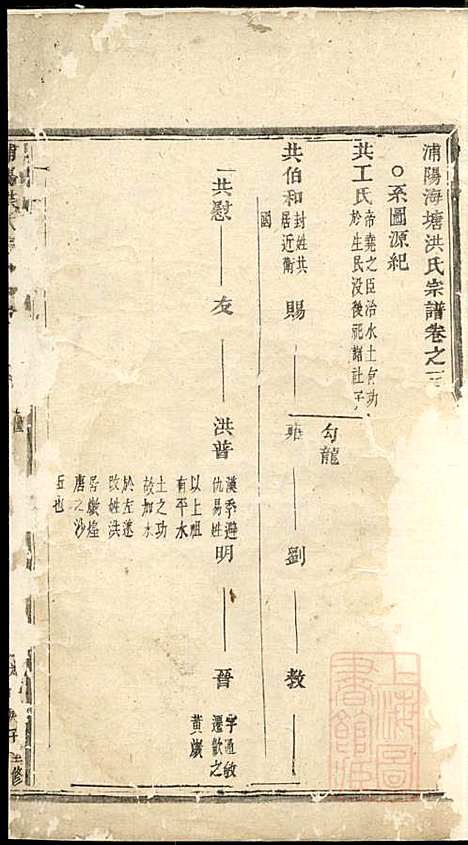 浦陽海塘洪氏宗譜卷之
○系圖源紀
共工氏 帝堯之臣治水土有功
於生民没後祀諸社
勾龍
共伯和 封姓共
居近衛
國
賜 雍 劉 教
共慰 友 洪普
漢季避
仇易姓
以上祖
有平水
土之功
故加水
於左遂
改姓洪
居燉煌
唐之沙
丘也
明 晉
字通敏
遷歙之
黄巖
上海圖書館藏